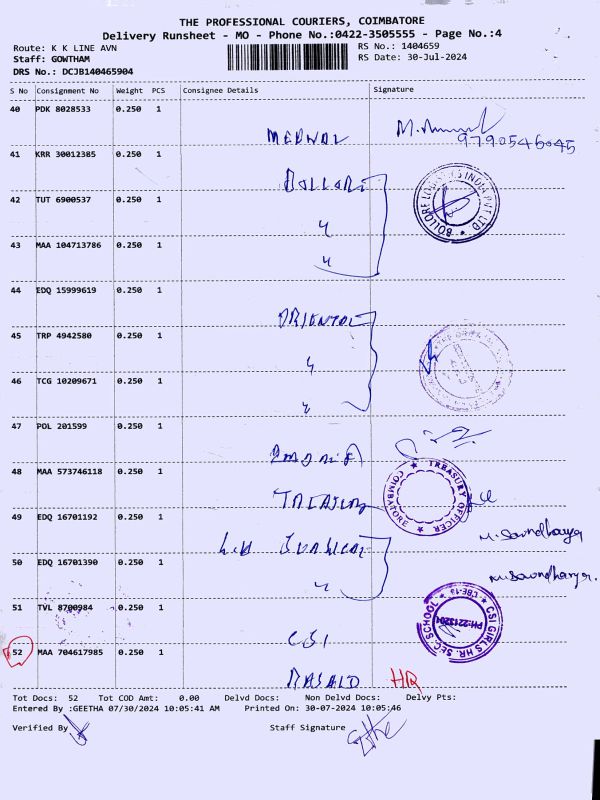 THE PROFESSIONAL COURIERS, COIMBATORE
Delivery Runsheet - MO - Phone No.:0422-3505555 - Page No.:4
Route: K K LINE AVN
RS No.: 1404659
Staff: GOWTHAM
RS Date: 30-Jul-2024
DRS No.: DCJB140465904
S No Consignment No Weight PCS Consignee Details Signature
40 PDK 8028533 0.250 1
9790546045
41 KRR 30012385 0.250 1
BOLLORE
42 TUT 6900537 0.250 1
BOLLORE LOGISTICS INDIA PVT LTD
43 MAA 104713786 0.250 1
44 EDQ 15999619 0.250 1
ORIENTAL
45 TRP 4942580 0.250 1
46 TCG 10209671 0.250 1
47 POL 201599 0.250 1
48 MAA 573746118 0.250 1
TREASURY OFFICER COIMBATORE
49 EDQ 16701192 0.250 1
M. Soundharya
50 EDQ 16701390 0.250 1
M. Soundharya.
51 TVL 8700984 0.250 1
CSI
CSI GIRLS HR. SEC. SCHOOL CBE-18
PH:2213201
52 MAA 704617985 0.250 1
HR
Tot Docs: 52 Tot COD Amt: 0.00 Delvd Docs: Non Delvd Docs: Delvy Pts:
Entered By :GEETHA 07/30/2024 10:05:41 AM Printed On: 30-07-2024 10:05:46
Verified By Staff Signature